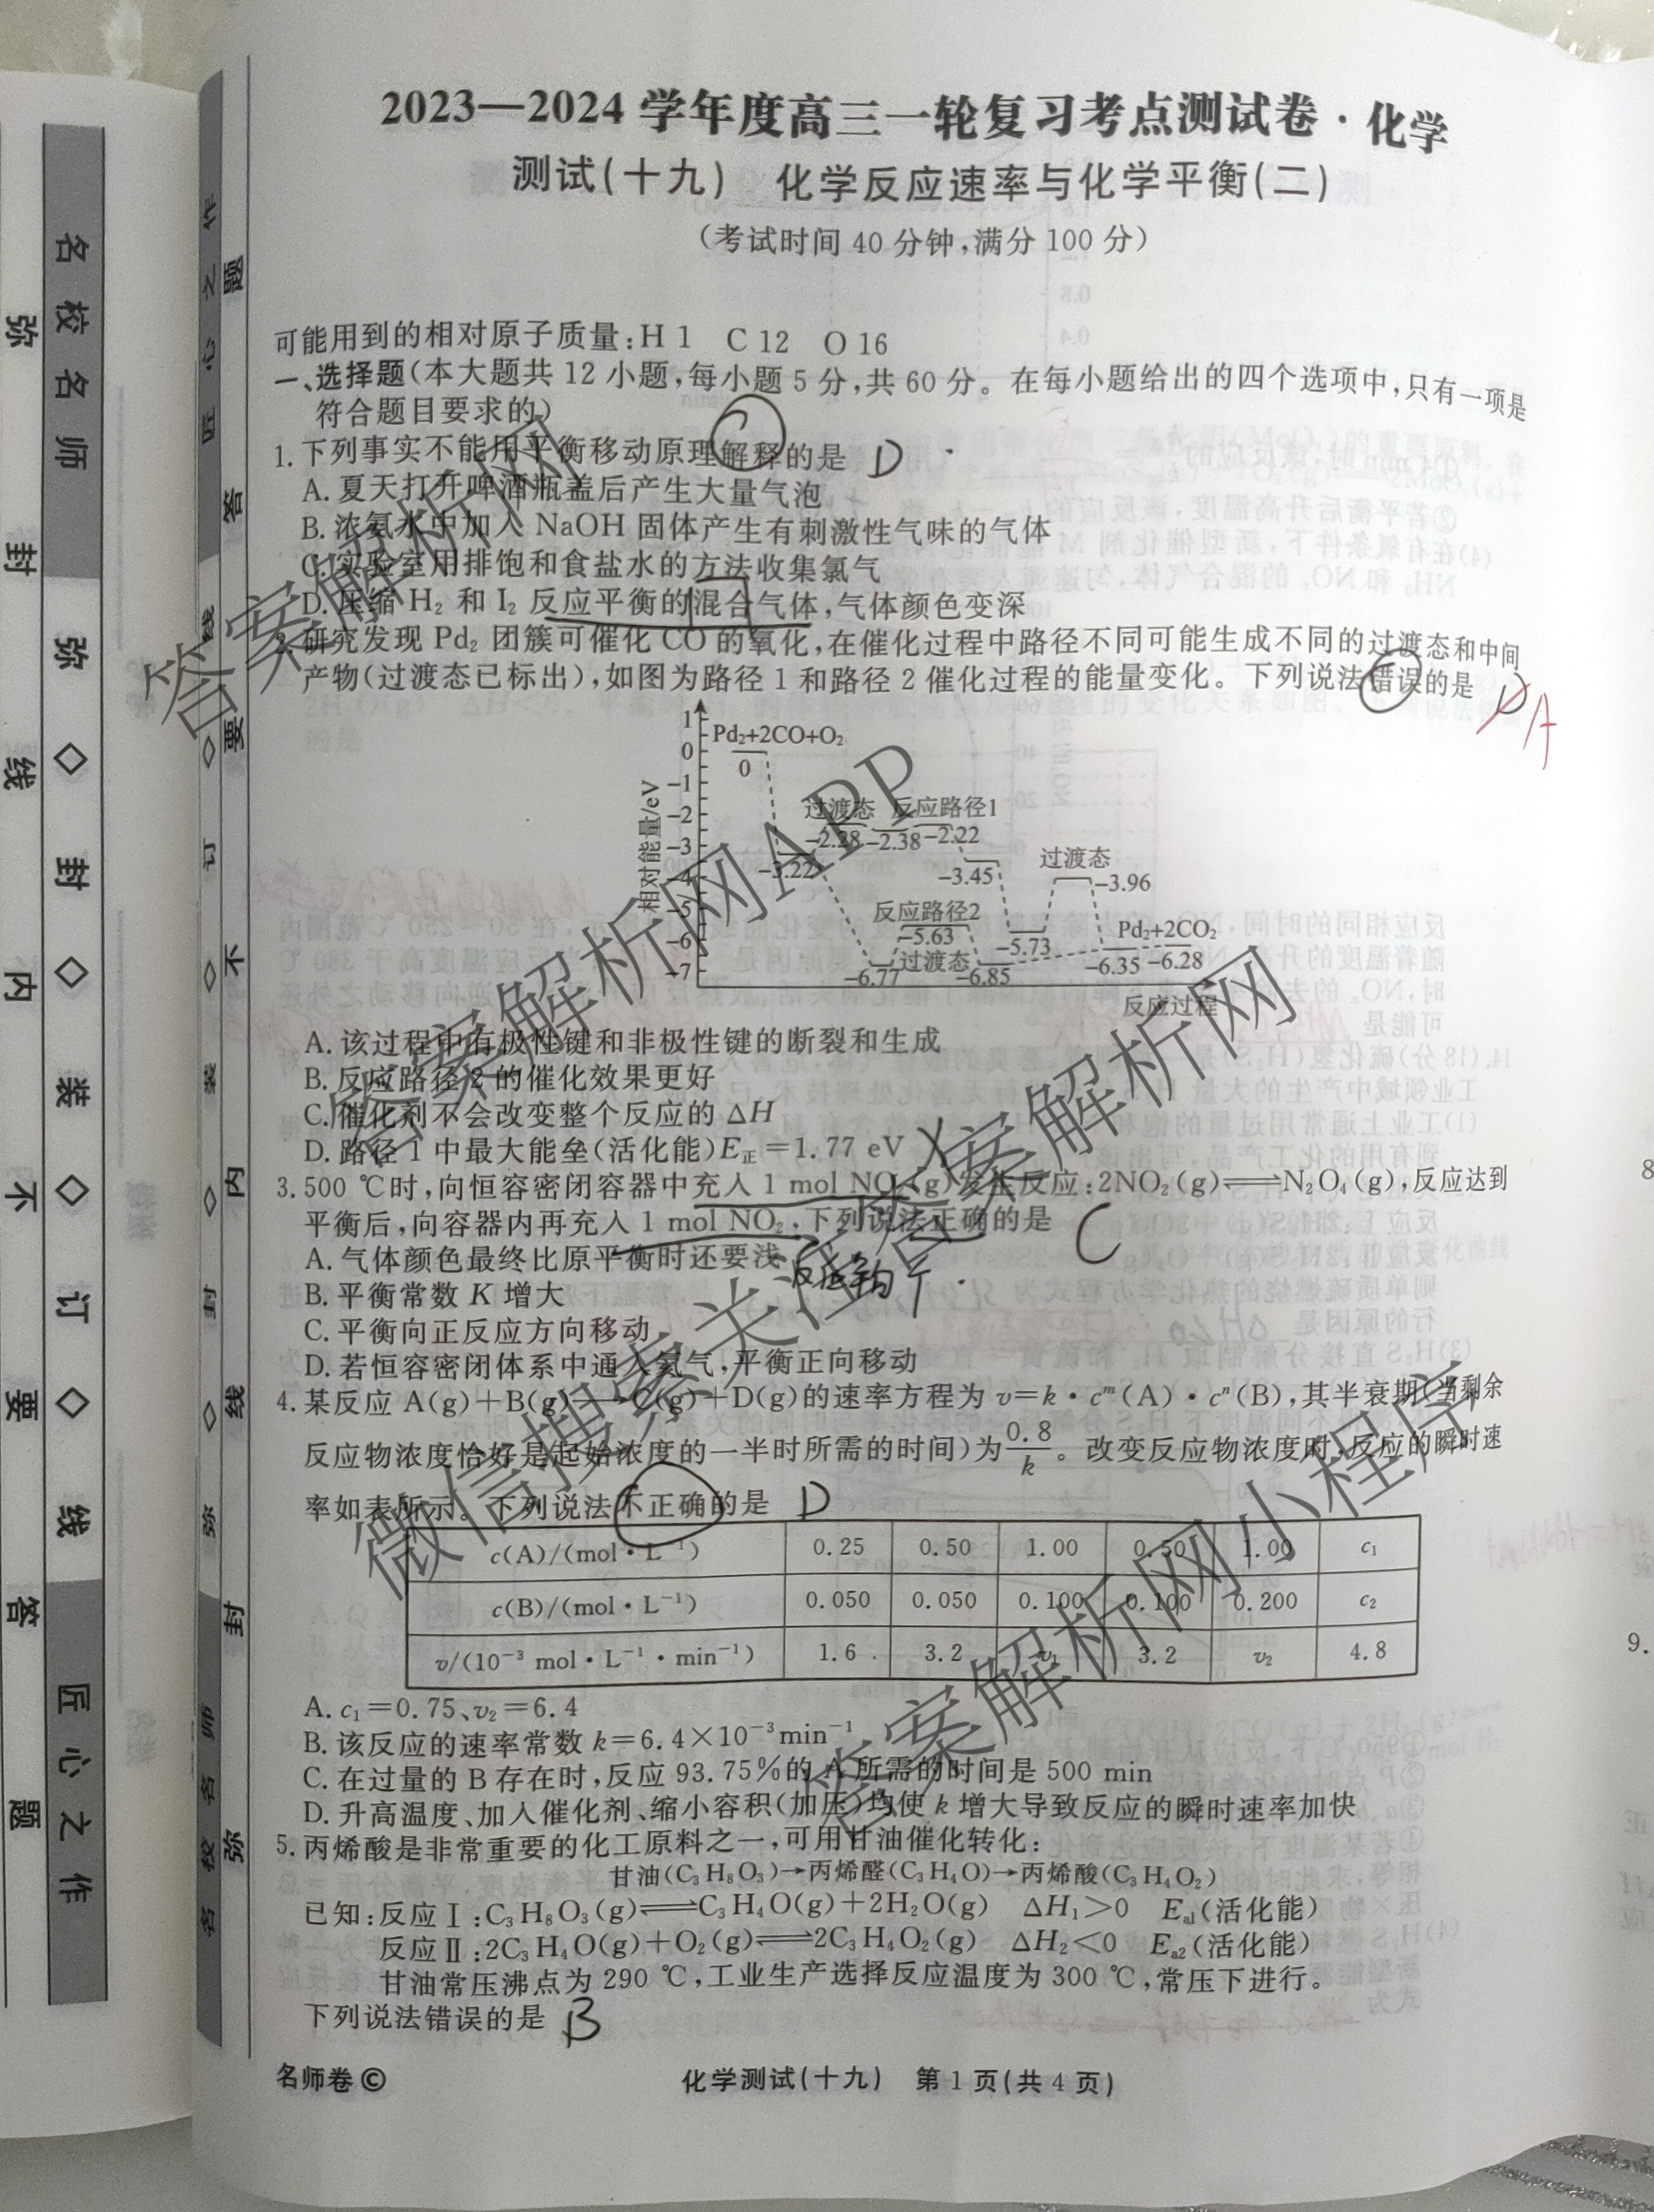 2023—2024 学年度高三一轮复习考点测试卷·化学
测试(十九) 化学反应速率与化学平衡(二)
(考试时间 40 分钟,满分 100 分)
可能用到的相对原子质量:H 1 C 12 O 16
一、选择题(本大题共 12 小题,每小题 5 分,共 60 分。在每小题给出的四个选项中,只有一项是
符合题目要求的)
1. 下列事实不能用平衡移动原理解释的是 D
A. 夏天打开啤酒瓶盖后产生大量气泡
B. 浓氨水中加入 NaOH 固体产生有刺激性气味的气体
C. 实验室用排饱和食盐水的方法收集氯气
D. 压缩 H₂ 和 I₂ 反应平衡的混合气体,气体颜色变深
2. 研究发现 Pd₂ 团簇可催化 CO 的氧化,在催化过程中路径不同可能生成不同的过渡态和中间
产物(过渡态已标出),如图为路径 1 和路径 2 催化过程的能量变化。下列说法错误的是 D A
相对能量/eV
1
0
-1
-2
-3
-4
-5
-6
-7
Pd₂+2CO+O₂
0
过渡态 反应路径1
-2.28 -2.38 -2.22
-3.22
-3.45
过渡态
-3.96
反应路径2
-5.63
过渡态
-5.73
Pd₂+2CO₂
-6.77
-6.85
-6.35 -6.28
反应过程
A. 该过程中有极性键和非极性键的断裂和生成
B. 反应路径 2 的催化效果更好
C. 催化剂不会改变整个反应的 ΔH
D. 路径 1 中最大能垒(活化能)E正=1.77 eV
3. 500 ℃时,向恒容密闭容器中充入 1 mol NO₂(g)发生反应:2NO₂(g)⇌N₂O₄(g),反应达到
平衡后,向容器内再充入 1 mol NO₂,下列说法正确的是 C
A. 气体颜色最终比原平衡时还要浅
B. 平衡常数 K 增大
C. 平衡向正反应方向移动
D. 若恒容密闭体系中通入氦气,平衡正向移动
4. 某反应 A(g)+B(g)→C(g)+D(g)的速率方程为 v=k·cᵐ(A)·cⁿ(B),其半衰期(当剩余
反应物浓度恰好是起始浓度的一半时所需的时间)为0.8/k。改变反应物浓度时,反应的瞬时速
率如表所示。下列说法不正确的是 D
c(A)/(mol·L⁻¹) 0.25 0.50 1.00 0.50 1.00 c₁
c(B)/(mol·L⁻¹) 0.050 0.050 0.100 0.100 0.200 c₂
v/(10⁻³ mol·L⁻¹·min⁻¹) 1.6 3.2 v₁ 3.2 v₂ 4.8
A. c₁=0.75、v₂=6.4
B. 该反应的速率常数 k=6.4×10⁻³min⁻¹
C. 在过量的 B 存在时,反应 93.75%的 A 所需的时间是 500 min
D. 升高温度、加入催化剂、缩小容积(加压)均使 k 增大导致反应的瞬时速率加快
5. 丙烯酸是非常重要的化工原料之一,可用甘油催化转化:
甘油(C₃H₈O₃)→丙烯醛(C₃H₄O)→丙烯酸(C₃H₄O₂)
已知:反应Ⅰ:C₃H₈O₃(g)⇌C₃H₄O(g)+2H₂O(g) ΔH₁>0 Eₐ₁(活化能)
反应Ⅱ:2C₃H₄O(g)+O₂(g)⇌2C₃H₄O₂(g) ΔH₂<0 Eₐ₂(活化能)
甘油常压沸点为 290 ℃,工业生产选择反应温度为 300 ℃,常压下进行。
下列说法错误的是 B
名师卷© 化学测试(十九) 第 1 页(共 4 页)
名校名师
弥◇封◇装◇订◇线
匠心之作
弥封线内不要答题
名校名师
弥◇封◇装◇订◇线
匠心之作
弥封线内不要答题
答案解析网
答案解析网APP
微信搜索关注答案解析网
答案解析网小程序
8
9.